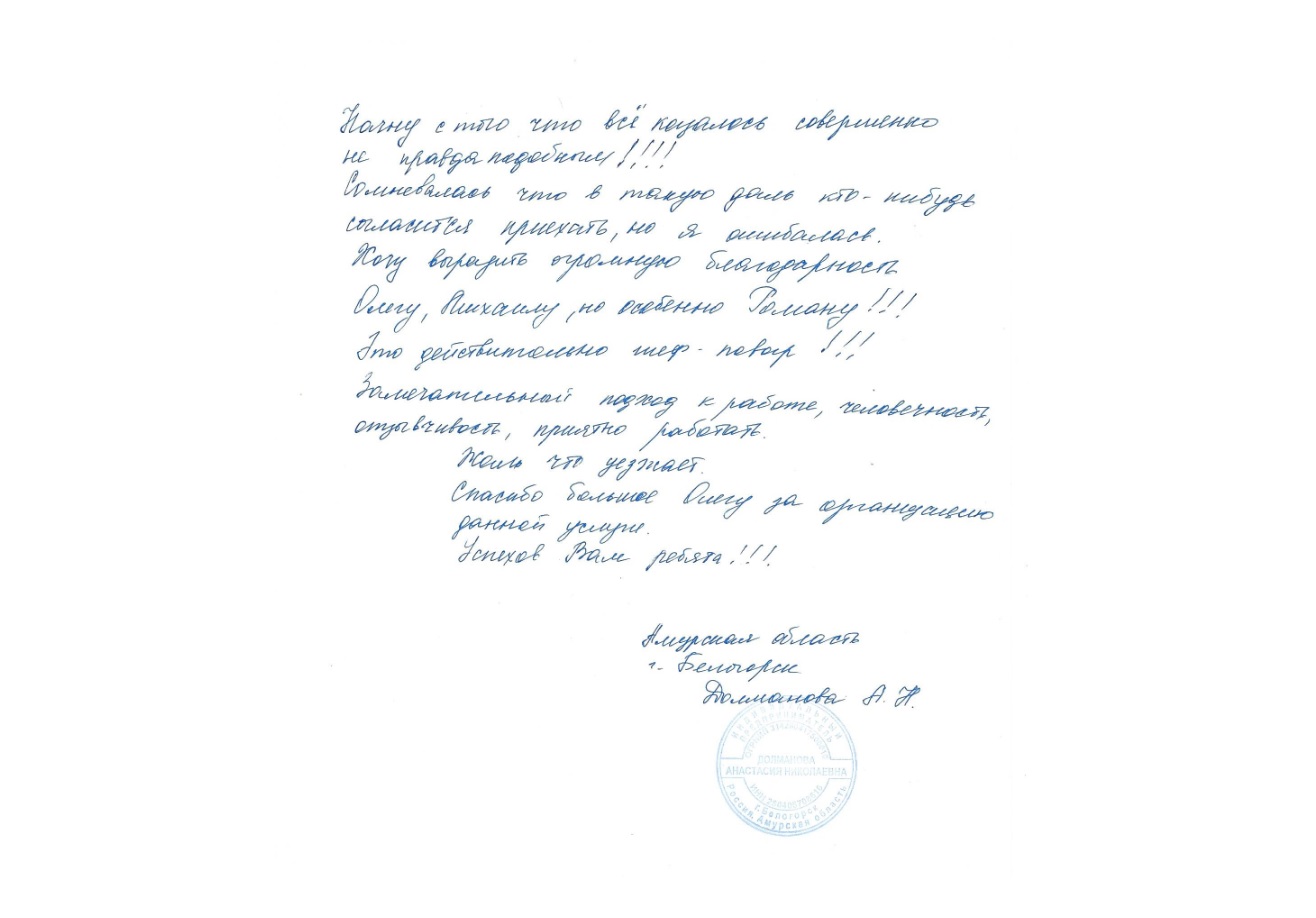 Начну с того что всё казалось совершенно
не правда подобным!!!!
Сомневалась что в такую даль кто-нибудь
согласится приехать, но я ошибалась.
Хочу выразить огромную благодарность
Олегу, Михаилу, но особенно Роману!!!
Это действительно шеф-повар !!!
Замечательный подход к работе, человечность,
отзывчивость, приятно работать.
Жаль что уезжает.
Спасибо большое Олегу за организацию
данной услуги.
Успехов Вам ребята!!!
Амурская область
г. Белогорск
Долманова А. Н.
ИНДИВИДУАЛЬНЫЙ
ПРЕДПРИНИМАТЕЛЬ
ДОЛМАНОВА
АНАСТАСИЯ НИКОЛАЕВНА
г. Белогорск
Россия, Амурская область